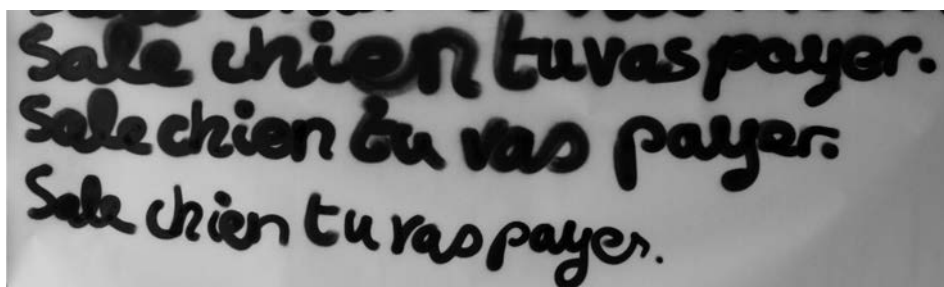 Sale chien tu vas payer.
Sale chien tu vas payer.
Sale chien tu vas payer.